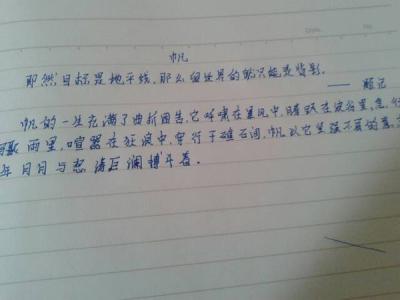 帆
既然目标是地平线,那么留给世界的就只能是背影。
—— 题记
帆的一生充满了曲折困苦,它呼啸在暴风中,腾跃在浪谷里,急行
雨里,喧嚣在狂浪中,穿行于礁石间,帆以它坚强不屈的意
年月月与怒涛巨澜搏斗着。